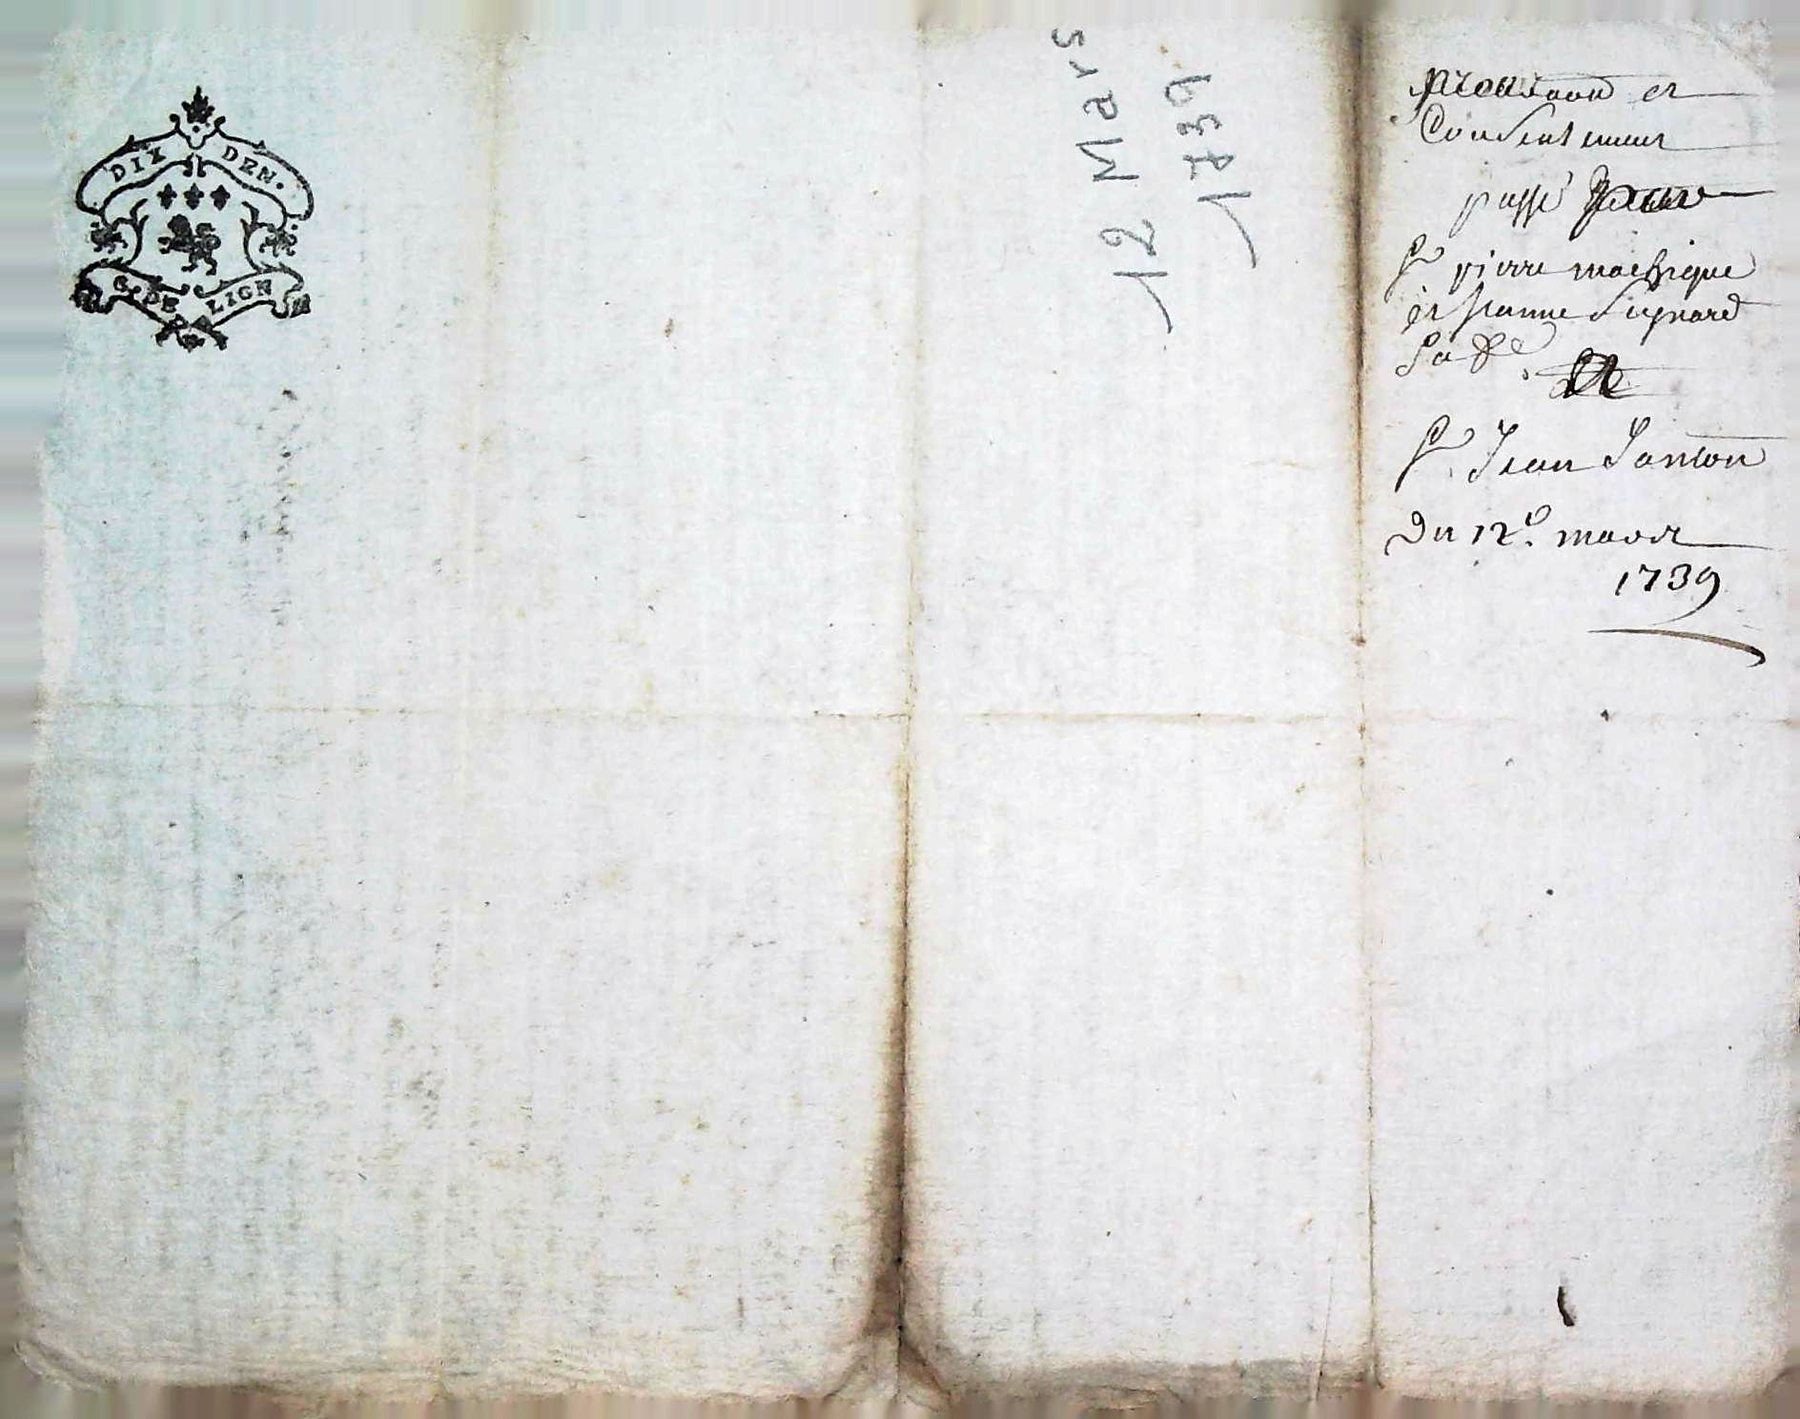 DIX DEN.
G. DE LIGN
12 Mars
1739
procuraon et
Consentement
passé par
Sr pierre
et jeanne Signard
Sa fe.
Sr Jean Sanson
Du 12e. mars
1739